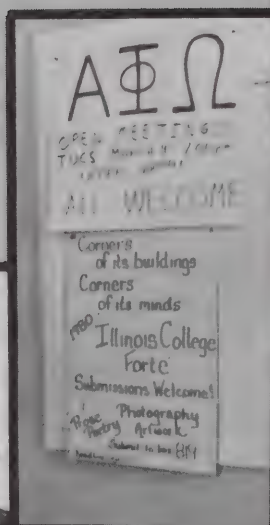 ΑΦΩ
OPEN MEETING
TUES
ALL WELCOME
Corners
of its buildings
Corners
of its minds
1980 Illinois College
Forte
Submissions Welcome!
Prose Photography
Poetry Artwork
Submit to box 8M